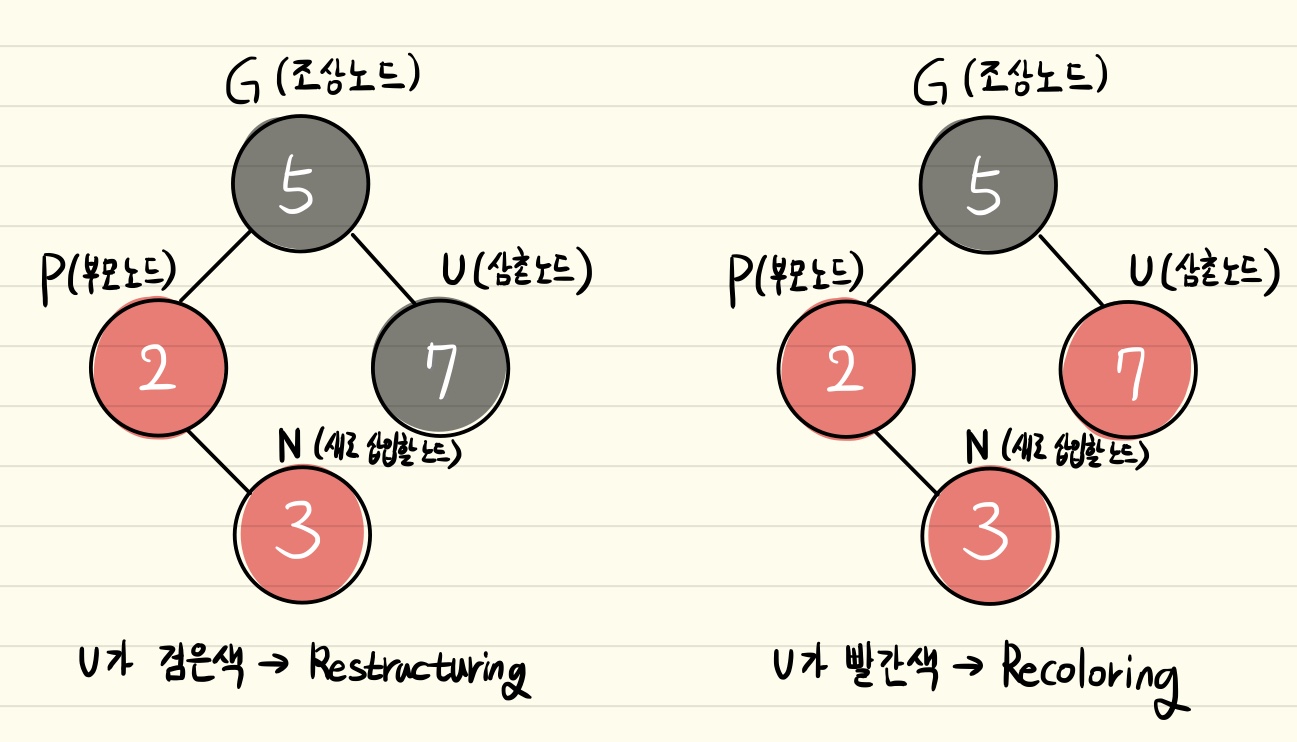 G (조상노드)
5
P(부모노드)
U(삼촌노드)
2
7
N (새로 삽입할 노드)
3
U가 검은색 → Restructuring
G (조상노드)
5
P(부모노드)
U(삼촌노드)
2
7
N (새로 삽입할 노드)
3
U가 빨간색 → Recoloring